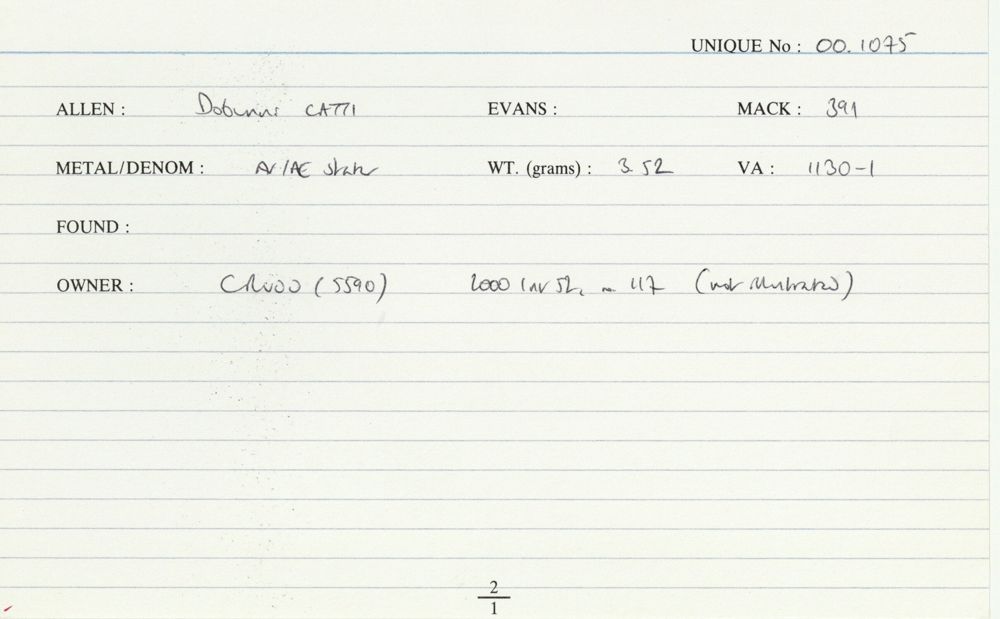 UNIQUE No : 00.1075
ALLEN : Dobunni CATTI EVANS : MACK : 391
METAL/DENOM : AV/AE Stater WT. (grams) : 3.52 VA : 1130-1
FOUND :
OWNER : (5590) 2000 117 (not illustrated)
2
1